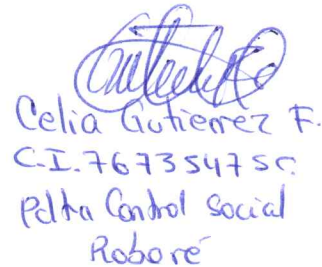 Celia Gutierrez F.
C.I. 7673547 SC.
Pdta Control Social
Roboré